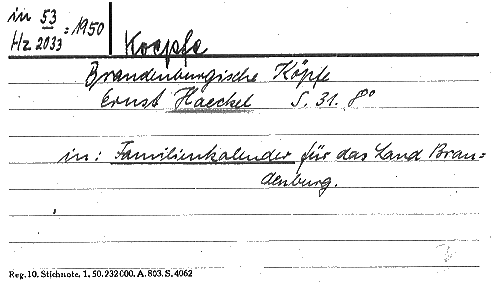 in 53
Hz 2033 = 1950
Koepfe
Brandenburgische Köpfe
Ernst Haeckel S. 31. 8°°
in: Familienkalender für das Land Bran=
denburg.
Reg. 10. Stichnote. 1. 50. 232 000. A. 803. S. 4062